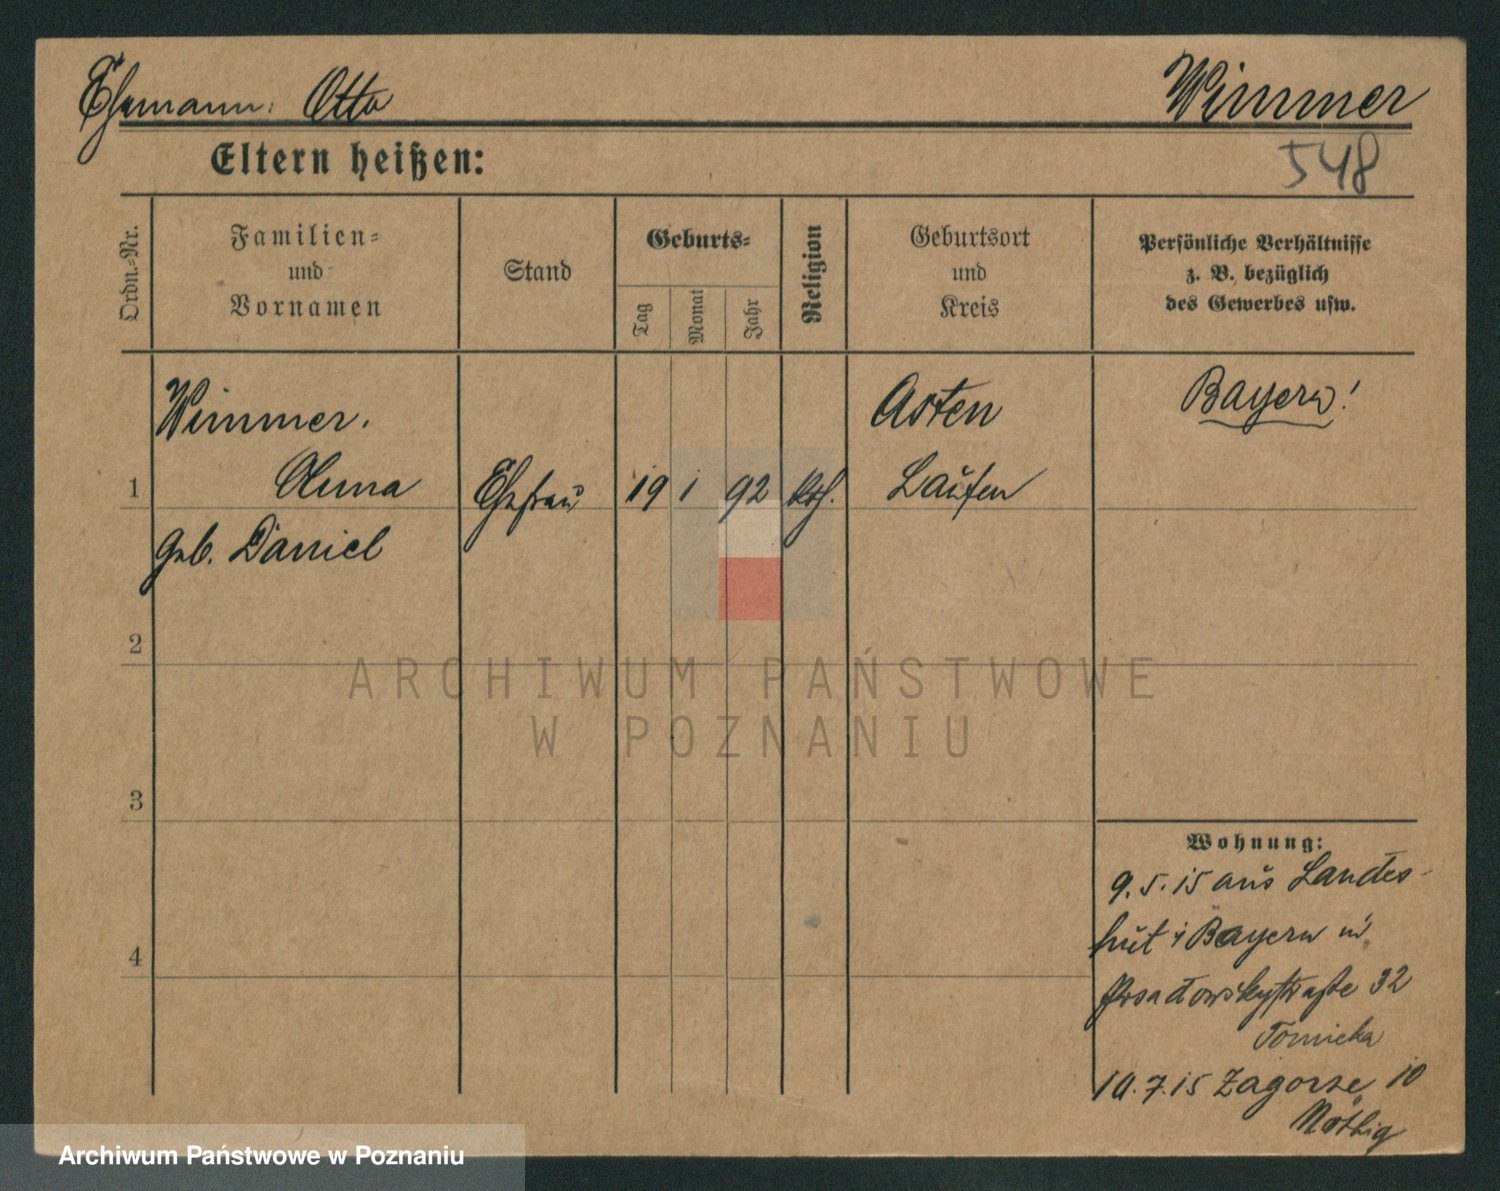 Ehemann: Otto Wimmer
Eltern heißen: 548
Ordn.-Nr.
Familien-
und
Vornamen
Stand
Geburts-
Tag
Monat
Jahr
Religion
Geburtsort
und
Kreis
Persönliche Verhältnisse
z. B. bezüglich
des Gewerbes usw.
Wimmer. Asten Bayern!
1 Anna Ehefrau 19 1 92 kth. Laufen
geb. Daniel
2
ARCHIWUM PAŃSTWOWE
W POZNANIU
3
Wohnung:
9.5.15 aus Landes-
4 hut i Bayern
Posadowskystraße 32
Tomicka
10.7.15 Zagorze 10
Nöthig
Archiwum Państwowe w Poznaniu